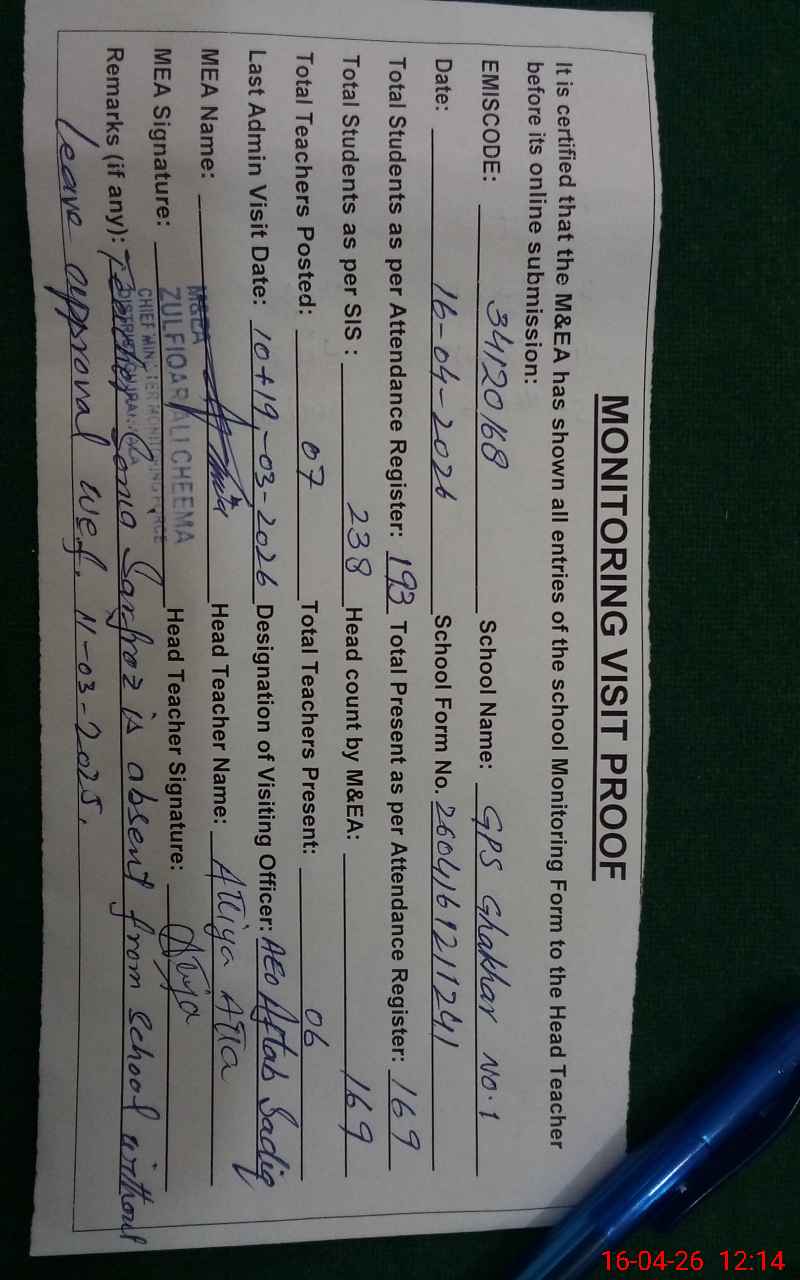 MONITORING VISIT PROOF
It is certified that the M&EA has shown all entries of the school Monitoring Form to the Head Teacher
before its online submission:
EMISCODE: 34120168 School Name: GPS Ghakhar No.1
Date: 16-04-2026 School Form No. 2604161211241
Total Students as per Attendance Register: 193 Total Present as per Attendance Register: 169
Total Students as per SIS : 238 Head count by M&EA: 169
Total Teachers Posted: 07 Total Teachers Present: 06
Last Admin Visit Date: 10+19,-03-2026 Designation of Visiting Officer: AEO Aftab Sadiq
MEA Name: Head Teacher Name: Attiya Atta
M&EA
ZULFIQAR ALI CHEEMA
CHIEF MINISTER MONITORING FORCE
MEA Signature: Head Teacher Signature: Attiya
Remarks (if any): Teacher Sonia Sarfraz is absent from school without
leave approval w.e.f. 11-03-2025.
16-04-26 12:14